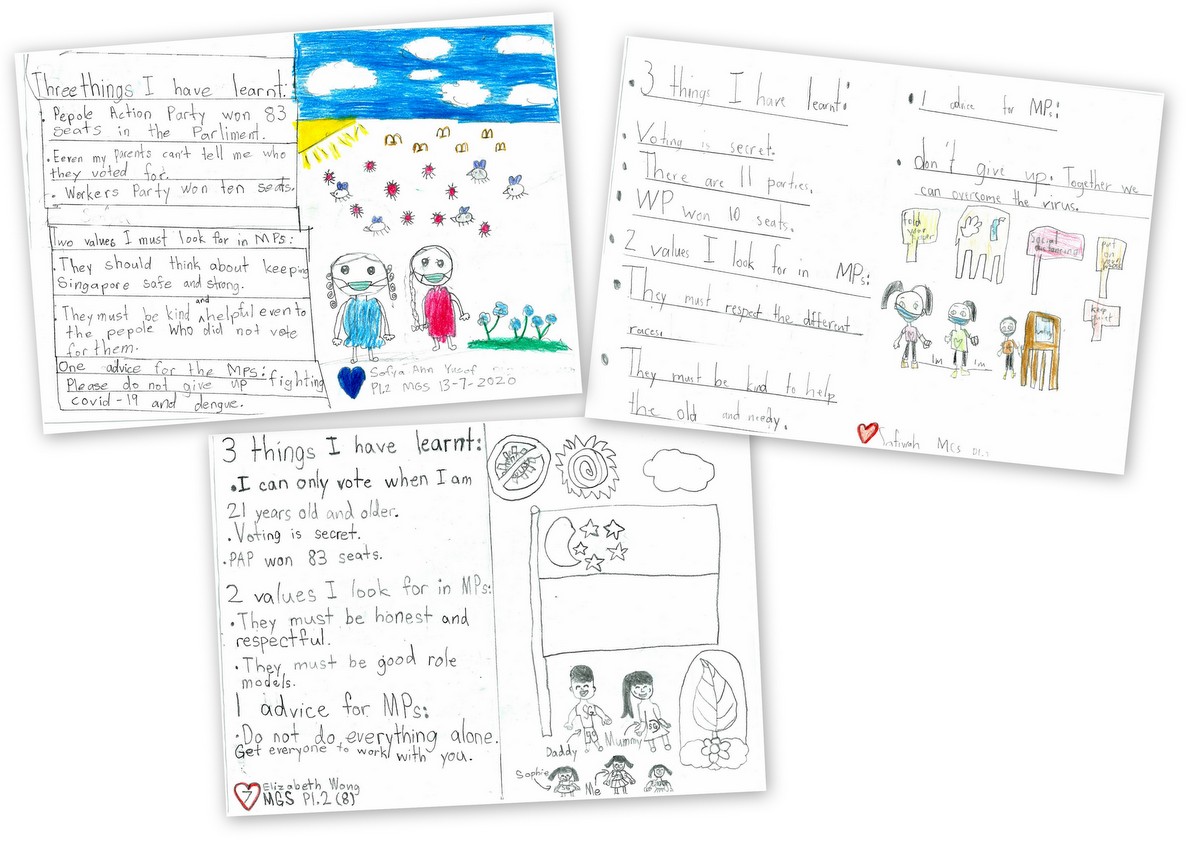 Three things I have learnt:
Pepole Action Party won 83
seats in the Parliment.
Eeven my parents can't tell me who
they voted for.
Workers Party won ten seats.
Two values I must look for in MPs:
They should think about keeping
Singapore safe and strong.
They must be kind and helpful even to
the pepole who did not vote
for them.
One advice for the MPs:
Please do not give up fighting
covid-19 and dengue.
Sofya Ann Yusof
P1.2 MGS 13-7-2020
3 things I have learnt:
Voting is secret.
There are 11 parties.
WP won 10 seats.
2 values I look for in MPs:
They must respect the different
races.
They must be kind to help
the old and needy.
1 advice for MPs:
don't give up. Together we
can overcome the virus.
Social distancing
put on your mask
1m 1m
MGS P1.2
3 things I have learnt:
I can only vote when I am
21 years old and older.
Voting is secret.
PAP won 83 seats.
2 values I look for in MPs:
They must be honest and
respectful.
They must be good role
models.
1 advice for MPs:
Do not do everything alone.
Get everyone to work with you.
7 Elizabeth Wong
MGS P1.2 (8)
SG
SG
Daddy
Mummy
Sophie
Me